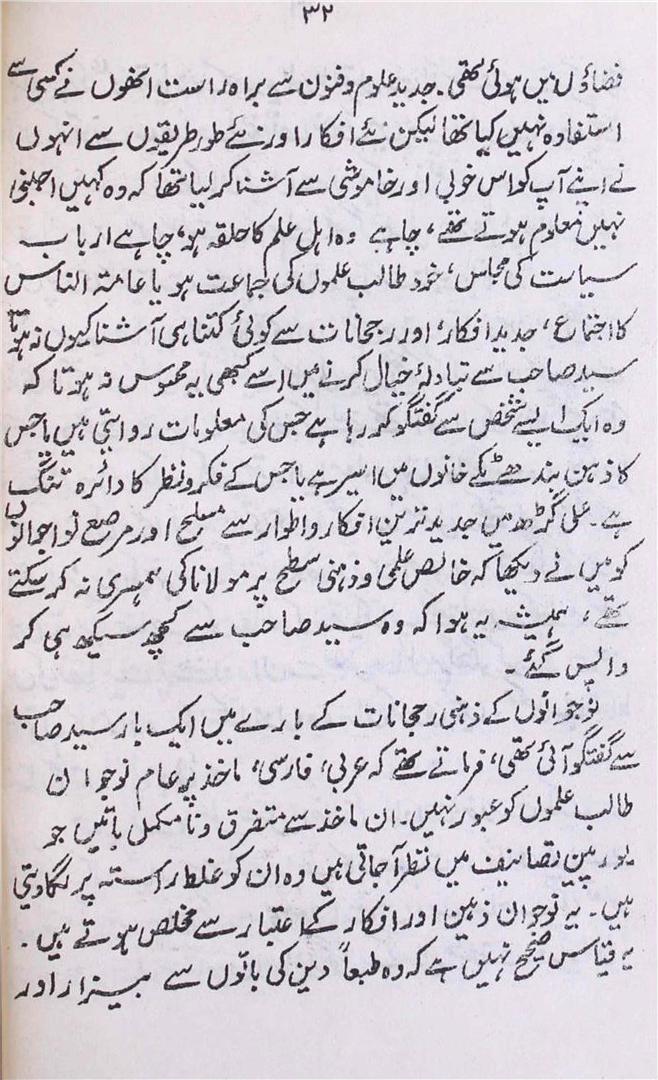 ۳۲
فضاؤں میں ہوئی تھی۔ جدید علوم و فنون سے براہ راست انھوں نے کسی سے
استفادہ نہیں کیا تھا لیکن نئے افکار اور نئے طور طریقوں سے انہوں
نے اپنے آپ کو اس خوبی اور خاموشی سے آشنا کر لیا تھا کہ وہ کہیں اجنبی
نہیں معلوم ہوتے تھے، چاہے وہ اہل علم کا حلقہ ہو، چاہے ارباب
سیاست کی مجالس، خود طالب علموں کی جماعت ہو یا عامۃ الناس
کا اجتماع، جدید افکار، اور رجحانات سے کوئی کتنا ہی آشنا کیوں نہ ہوتا
سید صاحب سے تبادلۂ خیال کرنے میں اسے کبھی یہ محسوس نہ ہوتا کہ
وہ ایک ایسے شخص سے گفتگو کر رہا ہے جس کی معلومات روایتی ہیں یا جس
کا ذہن بندھے ٹکے خانوں میں اسیر ہے یا جس کے فکر و نظر کا دائرہ تنگ
ہے۔ علی گڑھ میں جدید ترین افکار و اطوار سے مسلح اور مرصع نوجوانوں
کو میں نے دیکھا کہ خالص علمی و ذہنی سطح پر مولانا کی ہمسری نہ کر سکتے
تھے، ہمیشہ یہ ہوا کہ وہ سید صاحب سے کچھ سیکھ ہی کر
واپس گئے۔
نوجوانوں کے ذہنی رجحانات کے بارے میں ایک بار سید صاحب
سے گفتگو آئی تھی، فرماتے تھے کہ عربی، فارسی، ماخذ پر عام نوجوان
طالب علموں کو عبور نہیں۔ ان ماخذ سے متفرق و نامکمل باتیں جو
یورپین تصانیف میں نظر آجاتی ہیں وہ ان کو غلط راستہ پر لگا دیتی
ہیں۔ یہ نوجوان ذہین اور افکار کے اعتبار سے مخلص ہوتے ہیں۔
یہ قیاس صحیح نہیں ہے کہ وہ طبعاً دین کی باتوں سے بیزار اور